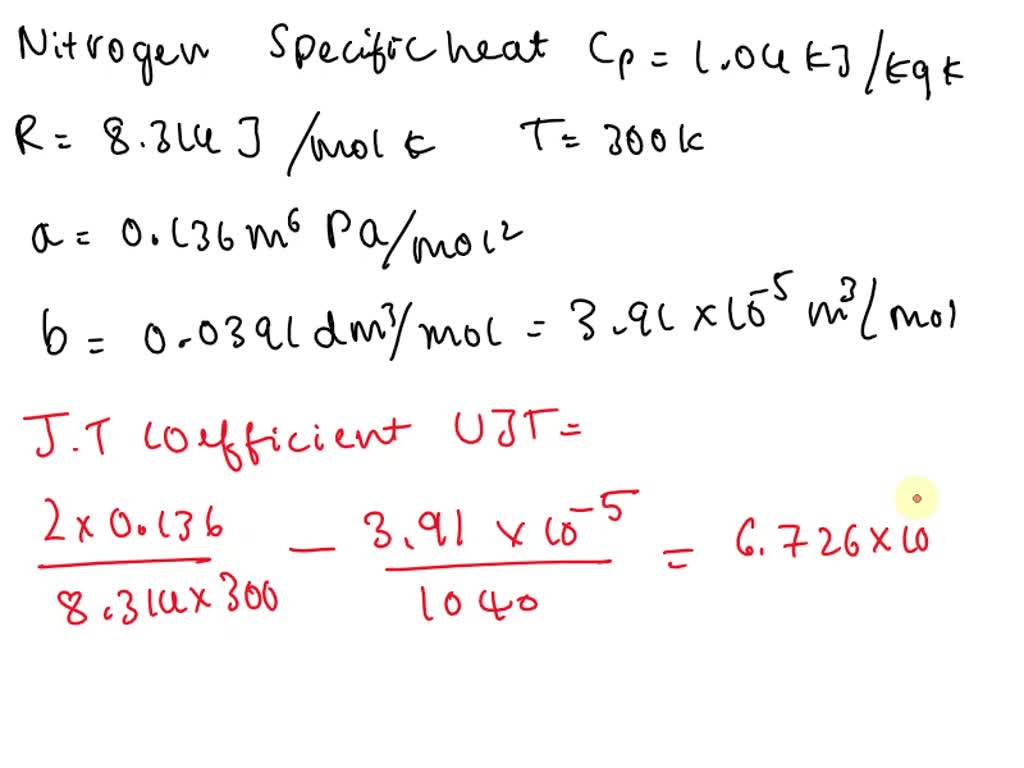 Nitrogen Specific heat Cp = 1.04 kJ/kg k
R = 8.314 J/mol k T = 300k
a = 0.136 m⁶ Pa/mol²
b = 0.0391 dm³/mol = 3.91 × 10⁻⁵ m³/mol
J.T coefficient UJT =
2 × 0.136 / 8.314 × 300 − 3.91 × 10⁻⁵ / 1040 = 6.726 × 10